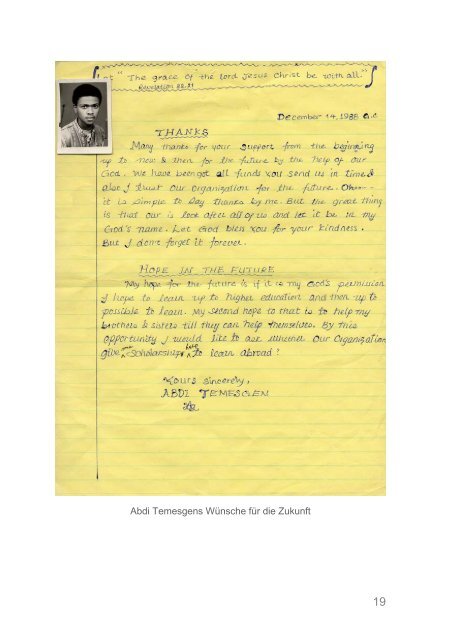 Let "The grace of the lord Jesus Christ be with all."
Revelation 22:21
December 14, 1988 G.C
THANKS
Many thanks for your support from the begining
up to now & then for the future by the help of our
God. We have been got all funds you send us in time &
also I trust our organization for the future.
it is simple to say thanks by me. But the great thing
is that our is look after all of us and let it be in my
God's name. Let God bless you for your kindness.
But I don't forget it forever.
HOPE IN THE FUTURE
My hope for the future is if it is my God's permission
I hope to learn up to higher education and then up to
possible to learn. My second hope to that is to help my
brothers & sisters till they can help themselves. By this
opportunity I would like to ask whether Our Organization
give me scholarship help to learn abroad?
Yours sincerely,
ABDI TEMESGEN
Abdi Temesgens Wünsche für die Zukunft
19